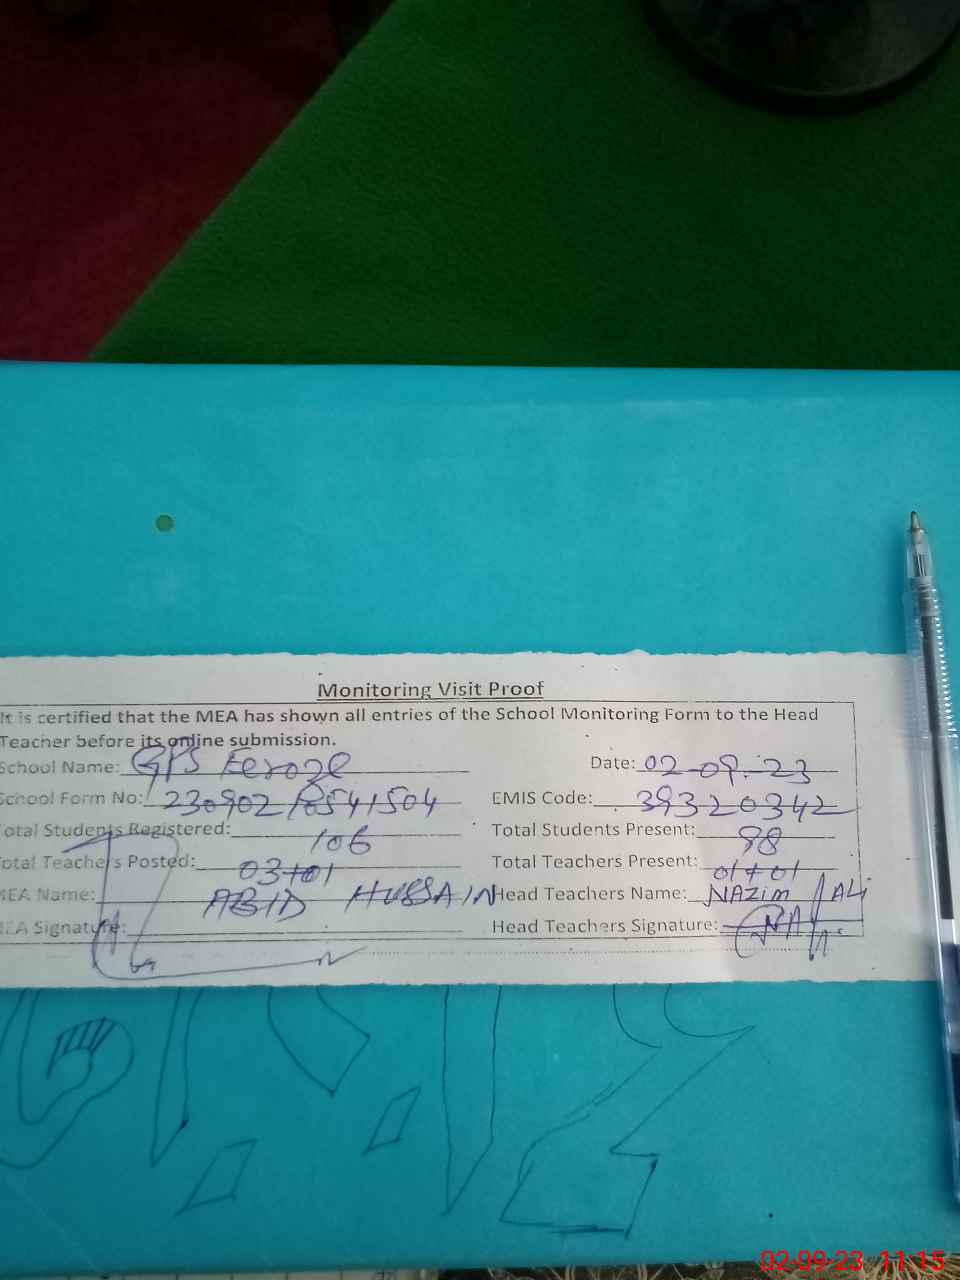 Monitoring Visit Proof
It is certified that the MEA has shown all entries of the School Monitoring Form to the Head
Teacher before its online submission.
School Name: GPS Feroze Date: 02-09-23
School Form No: 230902/8541504 EMIS Code: 39320342
Total Students Registered: 106 Total Students Present: 98
Total Teachers Posted: 03+01 Total Teachers Present: 01+01
MEA Name: ABID HUSSAIN Head Teachers Name: NAZIM ALI
MEA Signature: Head Teachers Signature:
02-09-23 11:15